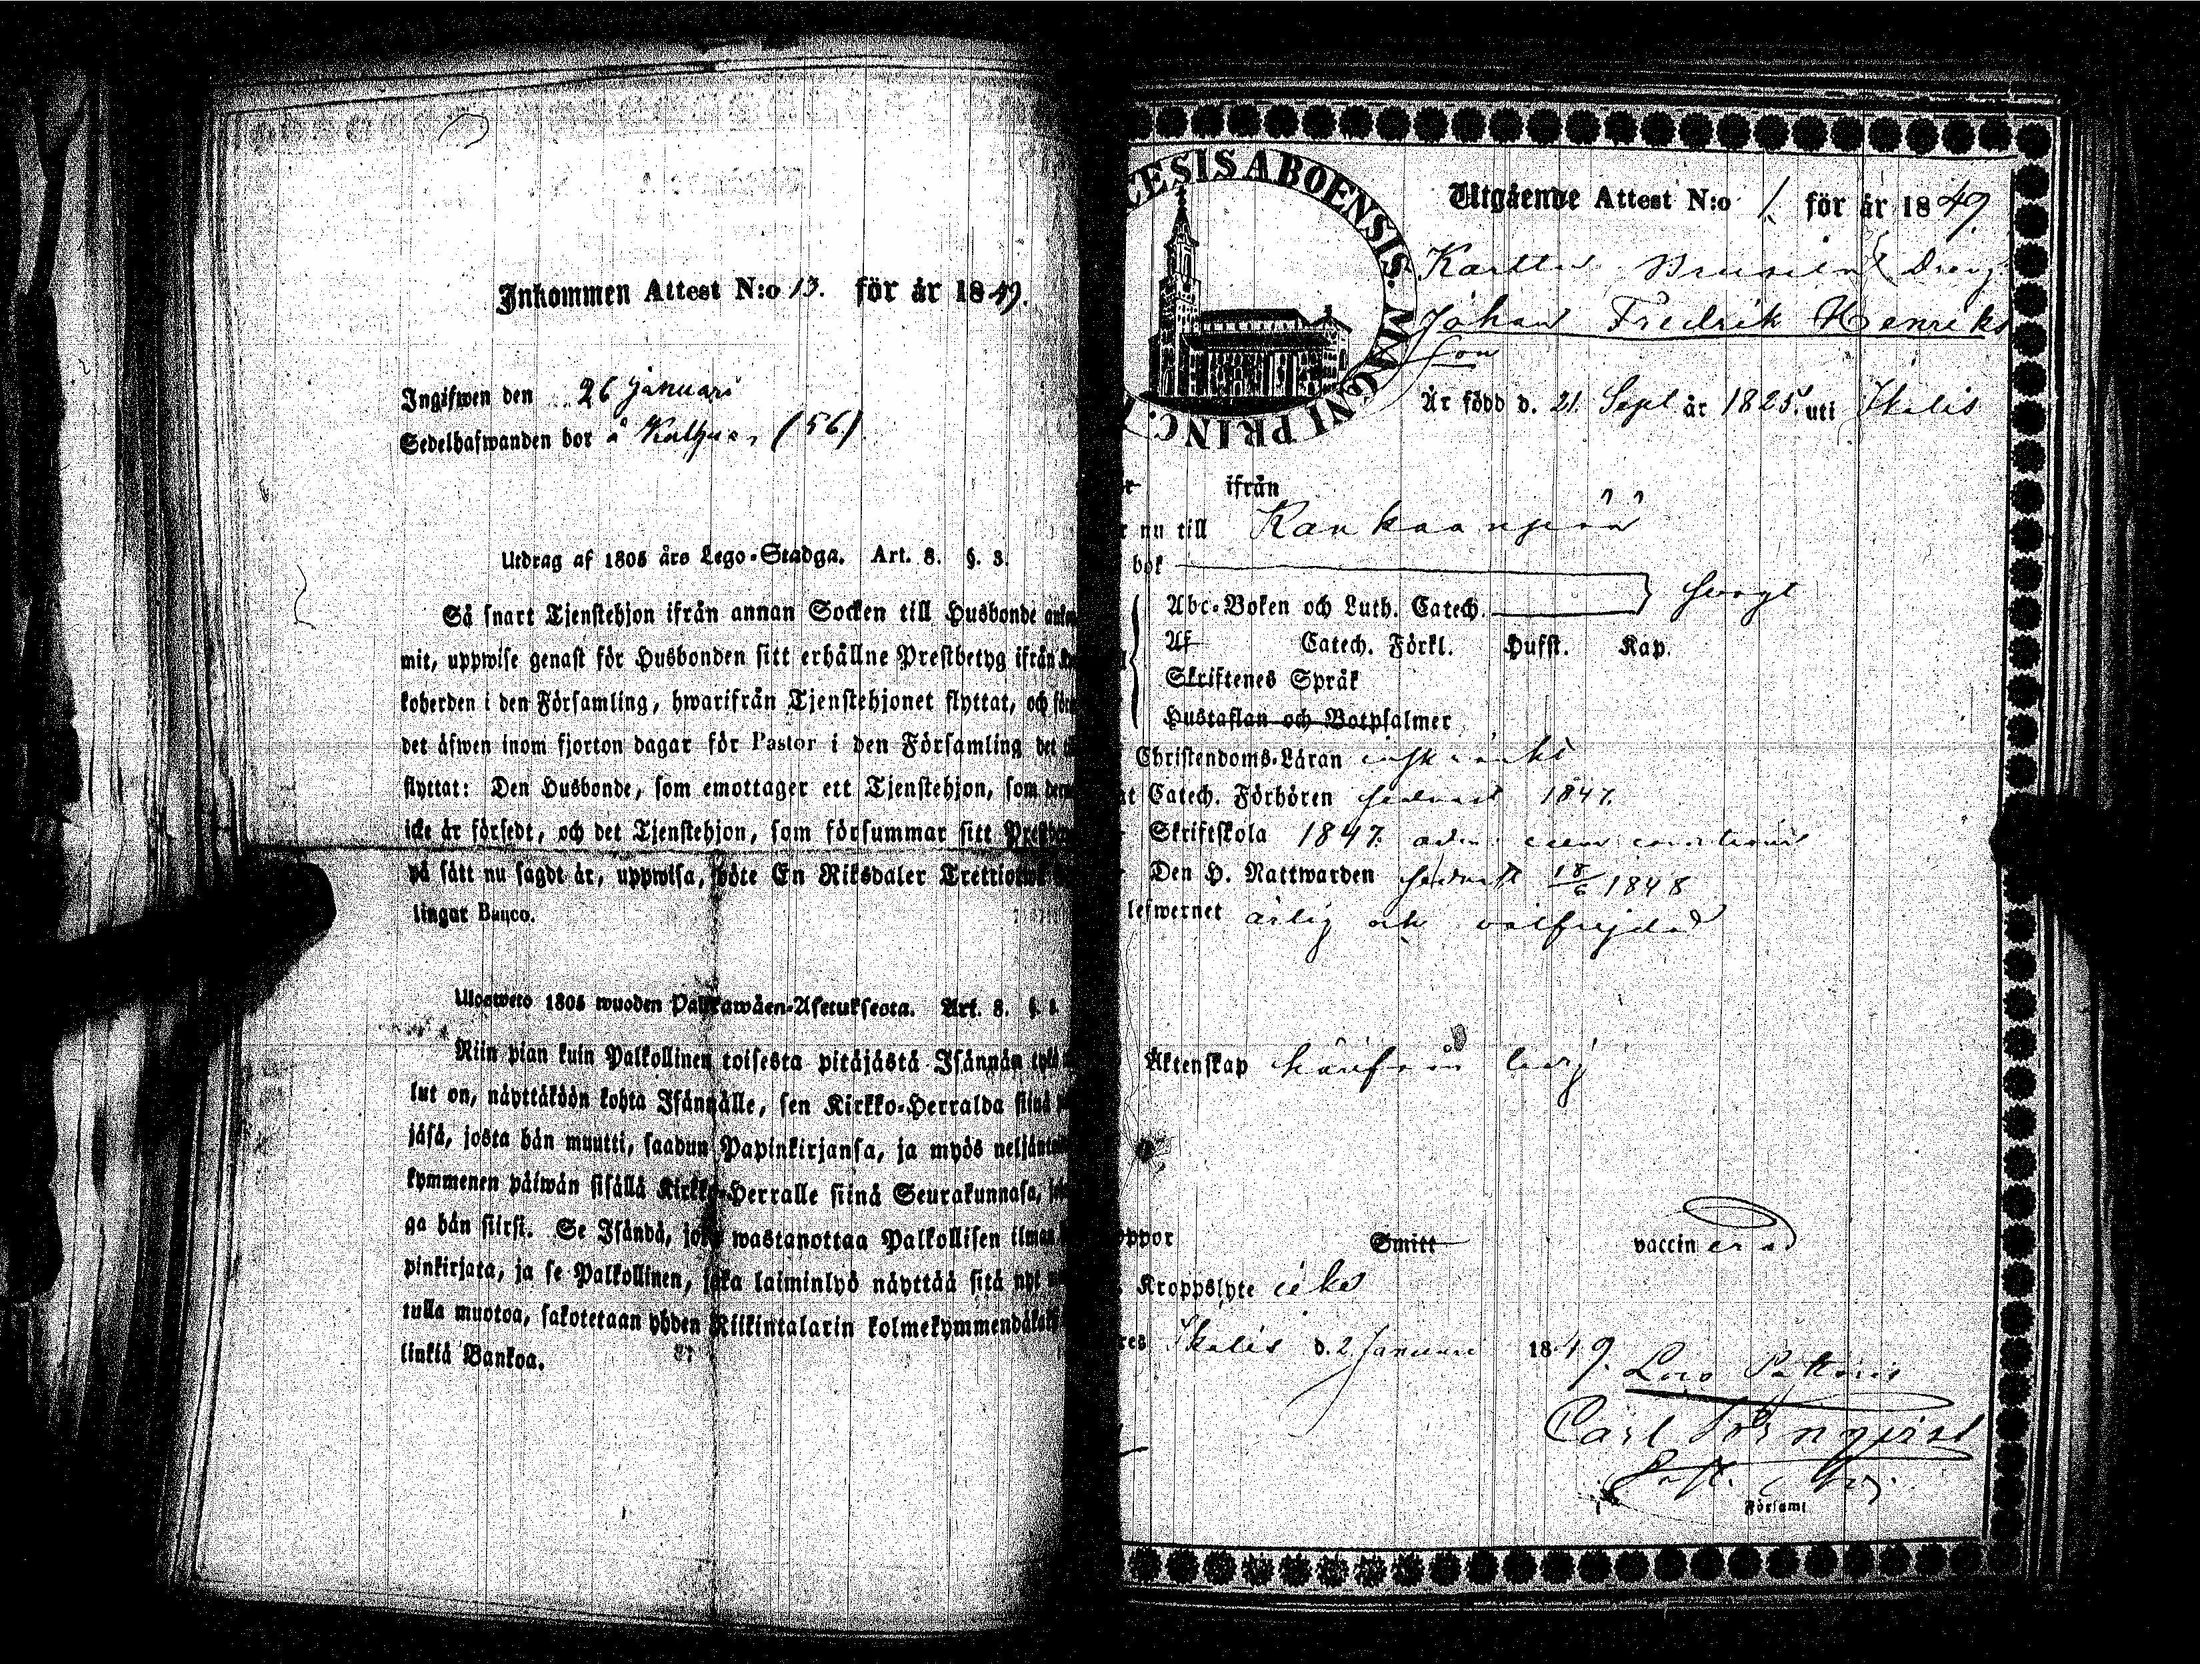 Inkommen Attest N:o 13. för år 1849.
Ingifwen den 26 januari
Sedelhafwanden bor å (56)
Utdrag af 1805 års Lego-Stadga. Art. 8. §. 3.
Så snart Tjenstehjon ifrån annan Socken till Husbonde
mit, uppwise genast för Husbonden sitt erhållne Prestbetyg ifrån
koherden i den Församling, hwarifrån Tjenstehjonet flyttat, och
det äfwen inom fjorton dagar för Pastor i den Församling det
flyttat: Den Husbonde, som emottager ett Tjenstehjon, som
icke är försedt, och det Tjenstehjon, som försummar sitt
på sätt nu sagdt är, uppwisa, böte En Riksdaler
lingar Banco.
Ulosweto 1805 wuoden Palkkawäen-Asetuksesta. Art. 8. §.
Niin pian kuin Palkollinen toisesta pitäjästä Isännän
lut on, näyttäköön kohta Isännälle, sen Kirkko-Herralda siinä
jäsä, josta hän muutti, saadun Papinkirjansa, ja myös
kymmenen päiwän sisällä Kirkko-Herralle siinä Seurakunnasa,
ga hän siirsi. Se Isändä, joka wastanottaa Palkollisen ilman
pinkirjata, ja se Palkollinen, joka laiminlyö näyttää sitä nyt
tulla muotoa, sakotetaan yhden Riikintalarin
linkiä Bankoa.
CESIS ABOENSIS. MAGNI PRINC.
Utgående Attest N:o 1. för år 1849.
Johan Fredrik Henriks
son
Är född d. 21 Sept år 1825. uti Ikalis
ifrån
nu till Kankaanpää
bok
Abc-Boken och Luth. Catech.
Af Catech. Förkl. Hufst. Kap.
Skriftenes Språk
Hustaflan och Botpsalmer
Christendoms-Läran
Catech. Förhören senast 1847.
Skriftskola 1847.
Den H. Nattwarden senast 18/6 1848
lefwernet ärlig och välfrejdad
Äktenskap härifrån ledig
oppor Smitt vaccinerad
Kroppslyte icke
Ikalis d. 2 Januari 1849.
Carl
Församl